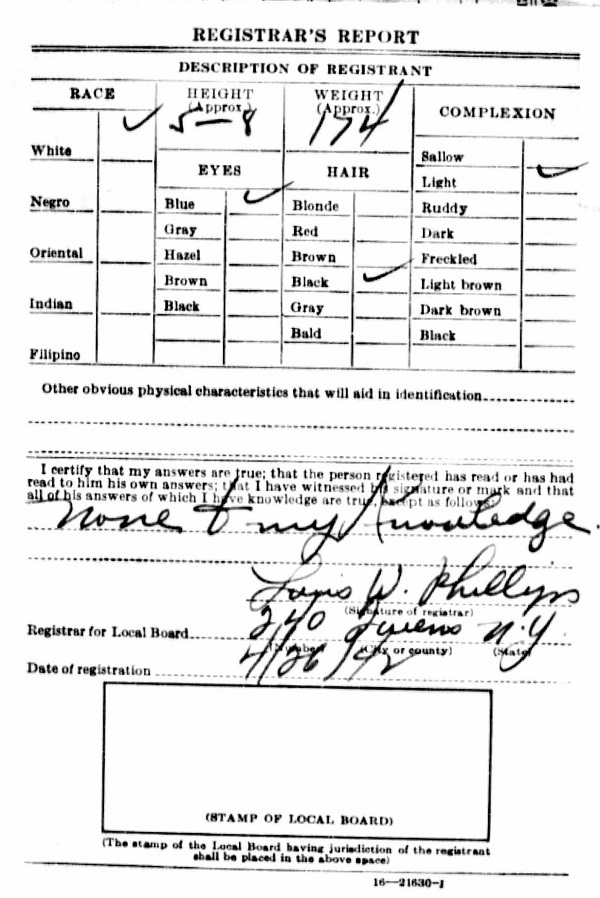 REGISTRAR'S REPORT
DESCRIPTION OF REGISTRANT
RACE
HEIGHT
(Approx.)
WEIGHT
(Approx.)
COMPLEXION
✓
5-8
174
White
EYES
HAIR
Sallow
Light ✓
Negro
Blue ✓
Blonde
Ruddy
Gray
Red
Dark
Oriental
Hazel
Brown
Freckled
Brown
Black ✓
Light brown
Indian
Black
Gray
Dark brown
Bald
Black
Filipino
Other obvious physical characteristics that will aid in identification
I certify that my answers are true; that the person registered has read or has had
read to him his own answers; that I have witnessed his signature or mark and that
all of his answers of which I have knowledge are true, except as follows:
none to my knowledge.
W. Phillips
(Signature of registrar)
Registrar for Local Board 240 Queens N.Y.
(Number) (City or county) (State)
Date of registration 4/26/42
(STAMP OF LOCAL BOARD)
(The stamp of the Local Board having jurisdiction of the registrant
shall be placed in the above space)
16—21630-1